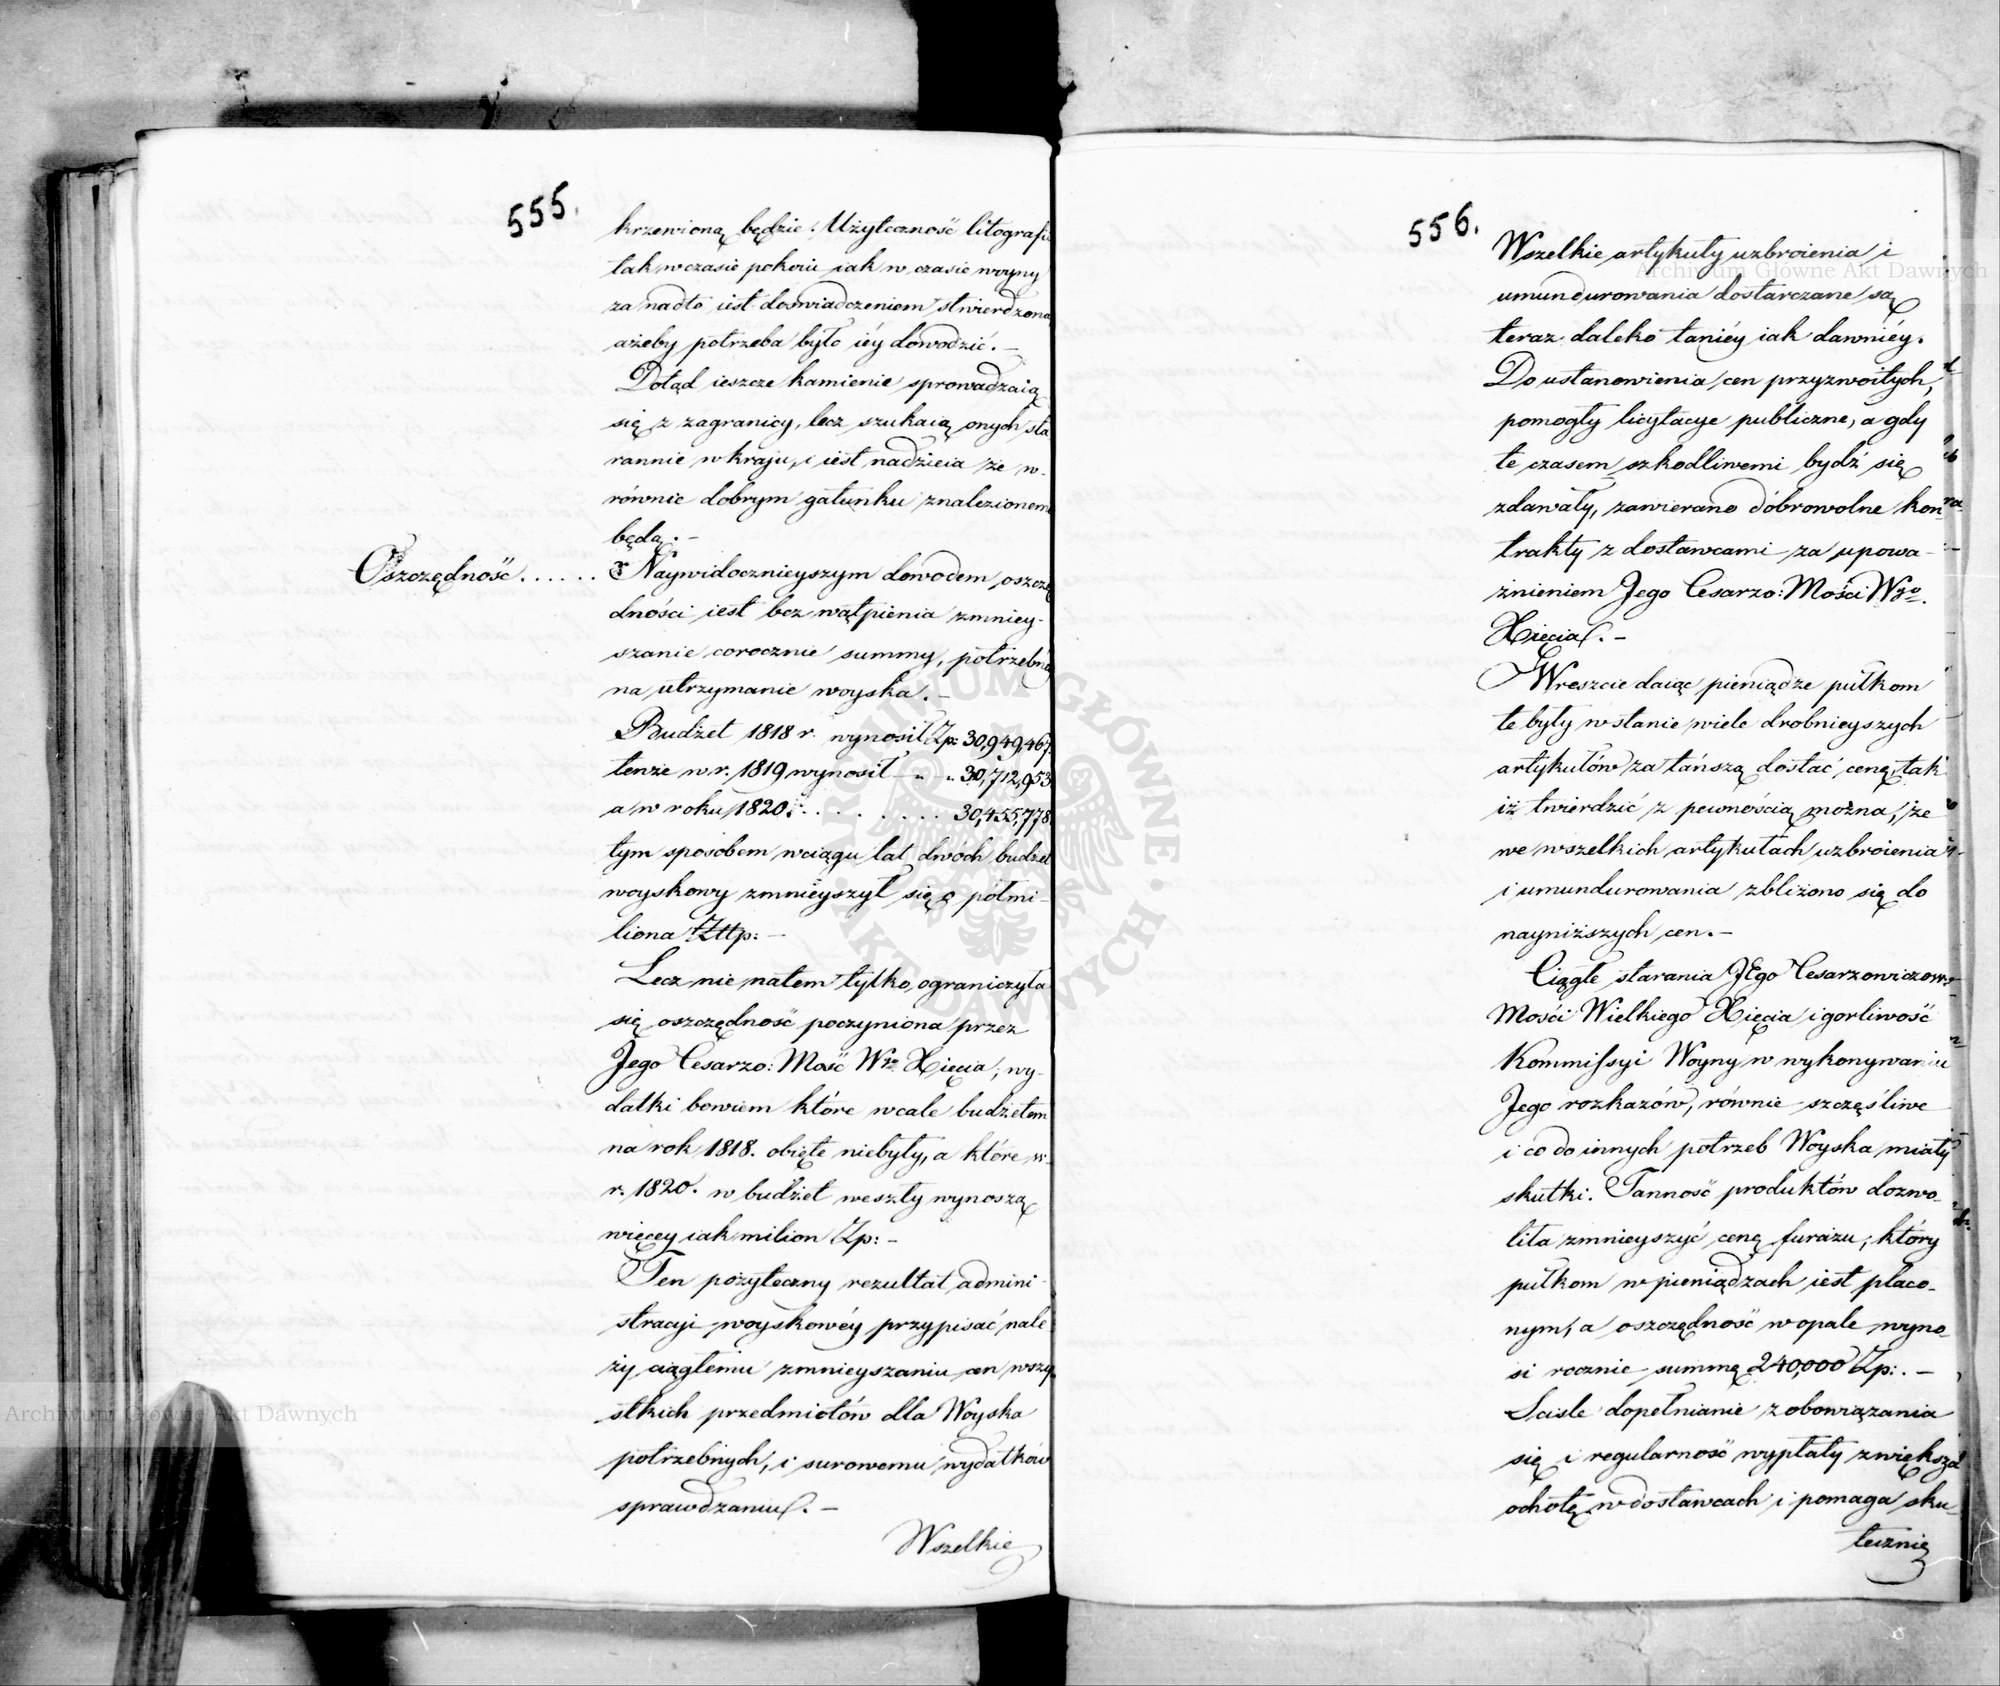 555.
krzewioną będzie. Użyteczność litografii
tak w czasie pokoiu iak w czasie woyny
za nadto iest doświadczeniem stwierdzona
ażeby potrzeba było iéy dowodzić. —
Dotąd ieszcze kamienie sprowadzaią
się z zagranicy, lecz szukaią onych sta
rannie w kraju, i iest nadzieia że w
równie dobrym gatunku znalezionemi
będą. —
Oszczędność...... Naywidocznieyszym dowodem oszczę
dności iest bez wątpienia zmniey-
szanie corocznie summy, potrzebney
na utrzymanie woyska. —
Budżet 1818 r. wynosił Zp: 30,949,467.
tenże w r. 1819 wynosił — „ „ 30,712,953.
a w roku 1820. . . . . . . . . 30,455,778.
tym sposobem wciągu lat dwóch budżet
woyskowy zmnieyszył się o półmi-
liona Złtp: —
Lecz nie natem tylko, ograniczyła
się oszczędność poczyniona przez
Jego Cesarzo: Mość Wgo Xięcia, wy-
datki bowiem które wcale budżetem
na rok 1818. obięte niebyły, a które w
r. 1820. w budżet weszły wynoszą
więcey iak milion Zp: —
Ten pożyteczny rezultat admini-
stracyi woyskowéy przypisać nale
ży ciągłemu zmnieyszaniu cen wszy-
stkich przedmiotów dla Woyska
potrzebnych, i surowemu wydatków
sprawdzaniu. —
Wszelkie
556.
Wszelkie artykuły uzbroienia i
umundurowania dostarczane są
teraz daleko taniéy iak dawniéy.
Do ustanowienia cen przyzwoitych,
pomogły licytacye publiczne, a gdy
te czasem szkodliwemi bydź się
zdawały, zawierano dobrowolne kon-
trakty z dostawcami za upowa-
żnieniem Jego Cesarzo: Mości Wgo.
Xięcia. —
Wreszcie daiąc pieniądze pułkom
te były wstanie wiele drobnieyszych
artykułów za tańszą dostać cenę, tak
iż twierdzić z pewnością można, że
we wszelkich artykułach uzbroienia
i umundurowania zbliżono się do
nayniższych cen. —
Ciągłe starania JEgo Cesarzowiczow-
Mości Wielkiego Xięcia i gorliwość
Kommissyi Woyny w wykonywaniu
Jego rozkazów, równie szczęśliwe
i co do innych potrzeb Woyska miały
skutki. Tanność produktów dozwo-
liła zmnieyszyć cenę furażu, który
pułkom w pieniądzach iest płaco-
nym, a oszczędność w opale wyno-
si rocznie summę 240,000 Zp: . —
Scisłe dopełnianie zobowiązania
się i regularność wypłaty zwiększa
ochotę w dostawcach i pomaga sku-
tecznie
Archiwum Główne Akt Dawnych
Archiwum Główne Akt Dawnych
ARCHIWUM GŁÓWNE · AKT DAWNYCH ·